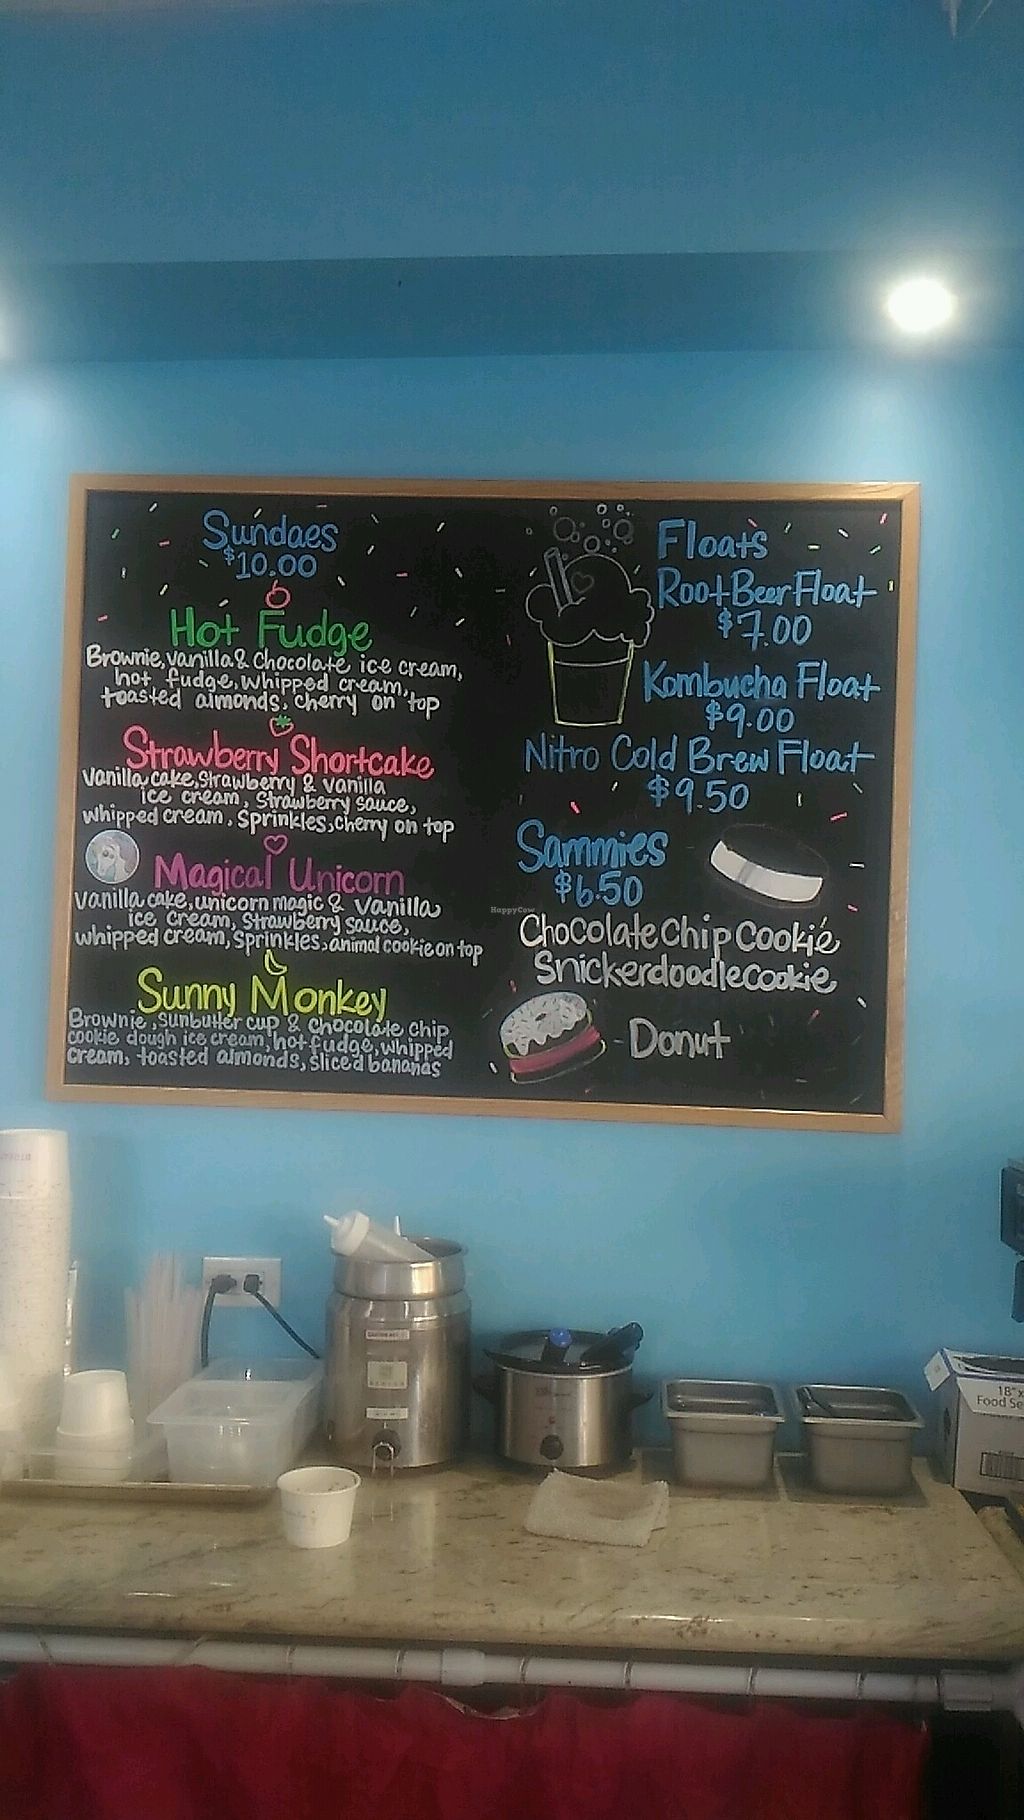 Sundaes
$10.00
Hot Fudge
Brownie, vanilla & chocolate ice cream,
hot fudge, whipped cream,
toasted almonds, cherry on top
Strawberry Shortcake
Vanilla cake, strawberry & vanilla
ice cream, strawberry sauce,
whipped cream, sprinkles, cherry on top
Magical Unicorn
Vanilla cake, unicorn magic & vanilla
ice cream, strawberry sauce,
whipped cream, sprinkles, animal cookie on top
Sunny Monkey
Brownie, sunbutter cup & chocolate chip
cookie dough ice cream, hot fudge, whipped
cream, toasted almonds, sliced bananas
Floats
Root Beer Float
$7.00
Kombucha Float
$9.00
Nitro Cold Brew Float
$9.50
Sammies
$6.50
HappyCow
Chocolate Chip Cookie
Snickerdoodle Cookie
Donut
18"
Food Se